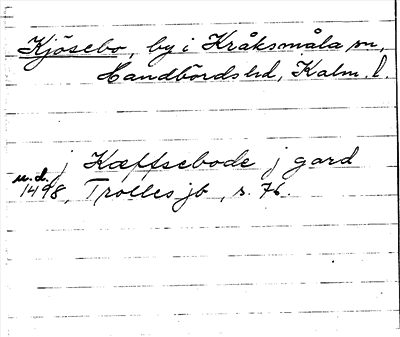 Kjösebo, by i Kråksmåla sn,
Handbörds hd, Kalm. l.
j Kætlsebode j gard
u.d.
1498, Trolles jb, s. 76.